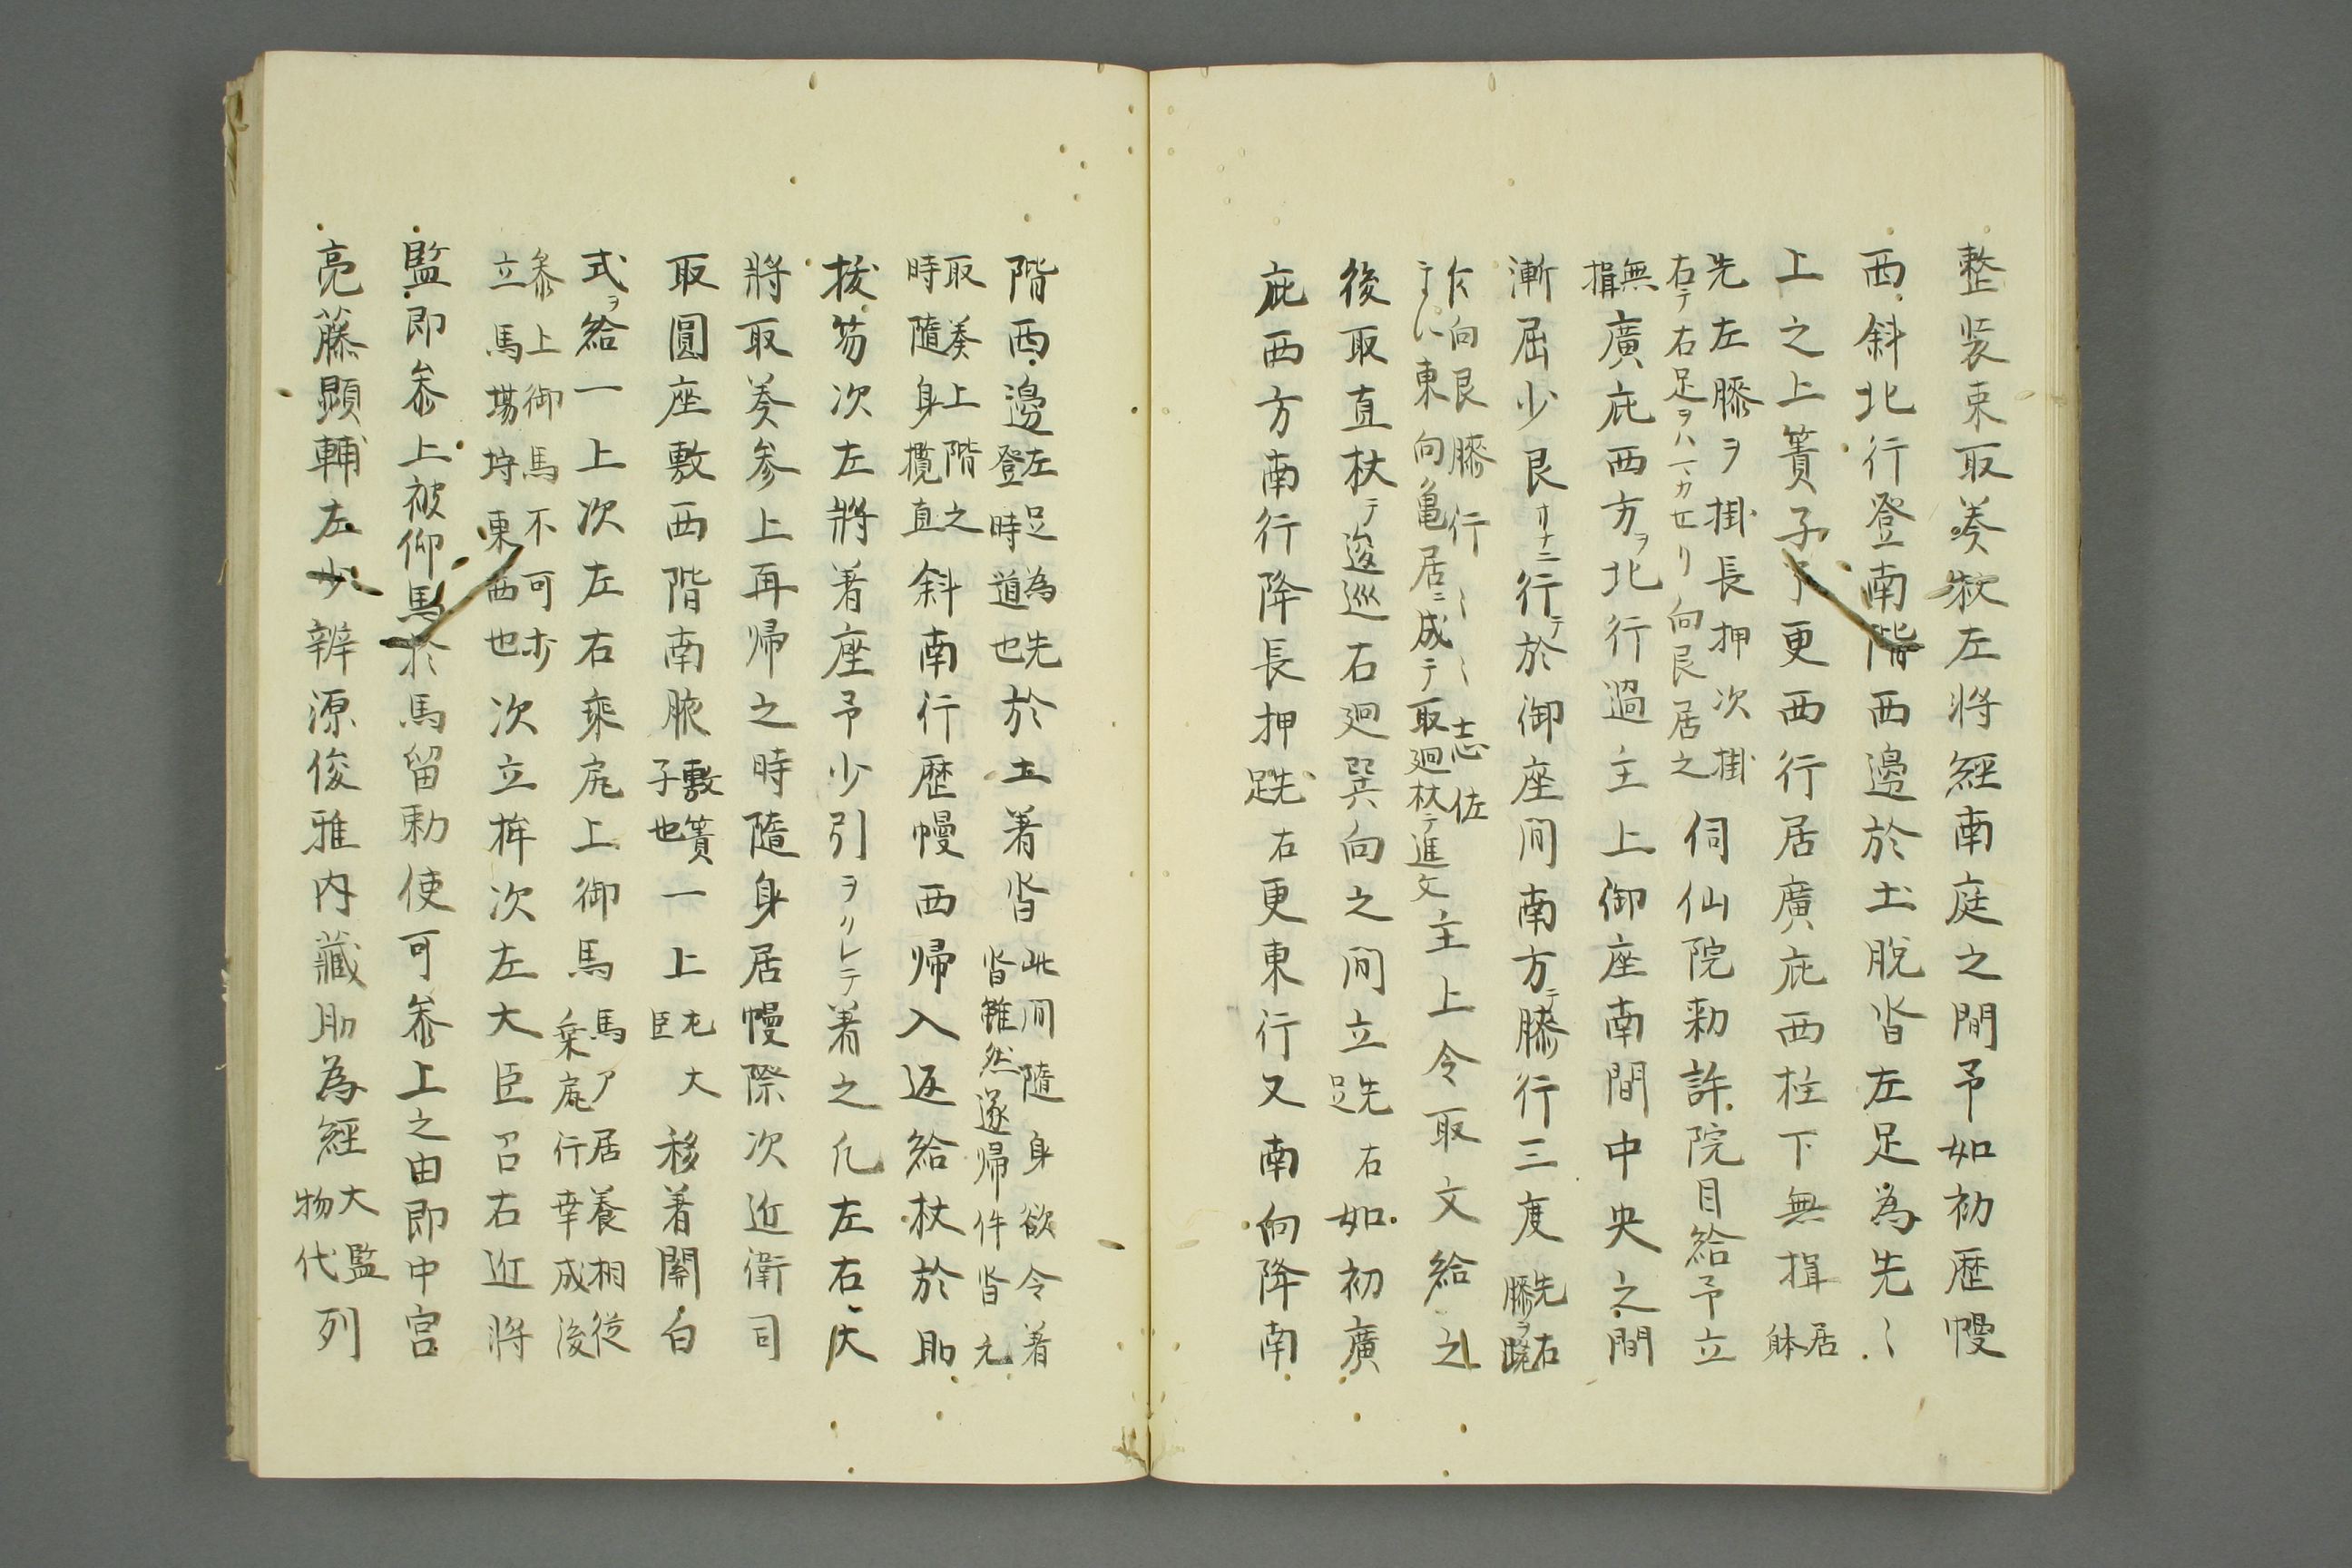 整装束取奏杖左将経南庭之間予如初歴幔
西斜北行登南階西邊於土脱沓左足為先〻
上之上簀子了更西行居廣庇西柱下無揖居
躰
先左膝ヲ掛長押次掛
右テ右足ヲハ
向艮居之
伺仙院勅許院目給予立
無
揖
廣庇西方ヲ北行過主上御座南間中央之間
漸屈少艮
行テ於御座間南方テ膝行三度先右
膝ヲ
乍向艮膝行
東向亀居ニ成テ取廻杖テ進文
主上令取文給之
後取直杖テ逡巡右廻巽向之間立跣右如初廣
庇西方南行降長押跣右更東行又南向降南
階西邊左足為先
登時道也
於土着沓此間隨身欲令着
沓雖然遂帰件沓元
取奏上階之
時隨身攬直
斜南行歴幔西帰入返給杖於助
抜笏次左将着座予少引
着之凡左右
将取奏参上再帰之時隨身居幔際次近衛司
取圓座敷西階南腋敷簀
子也
一上左大
臣
移着關白
式ヲ給一上次左右乗尻上御馬馬
居養相従
乗尻行幸成後
参上御馬不可
立馬場埒東西也
次立桙次左大臣召右近将
監即参上被仰馬於馬留勅使可参上之由即中宮
亮藤顕輔左少辨源俊雅内蔵助為経大監
物代
列